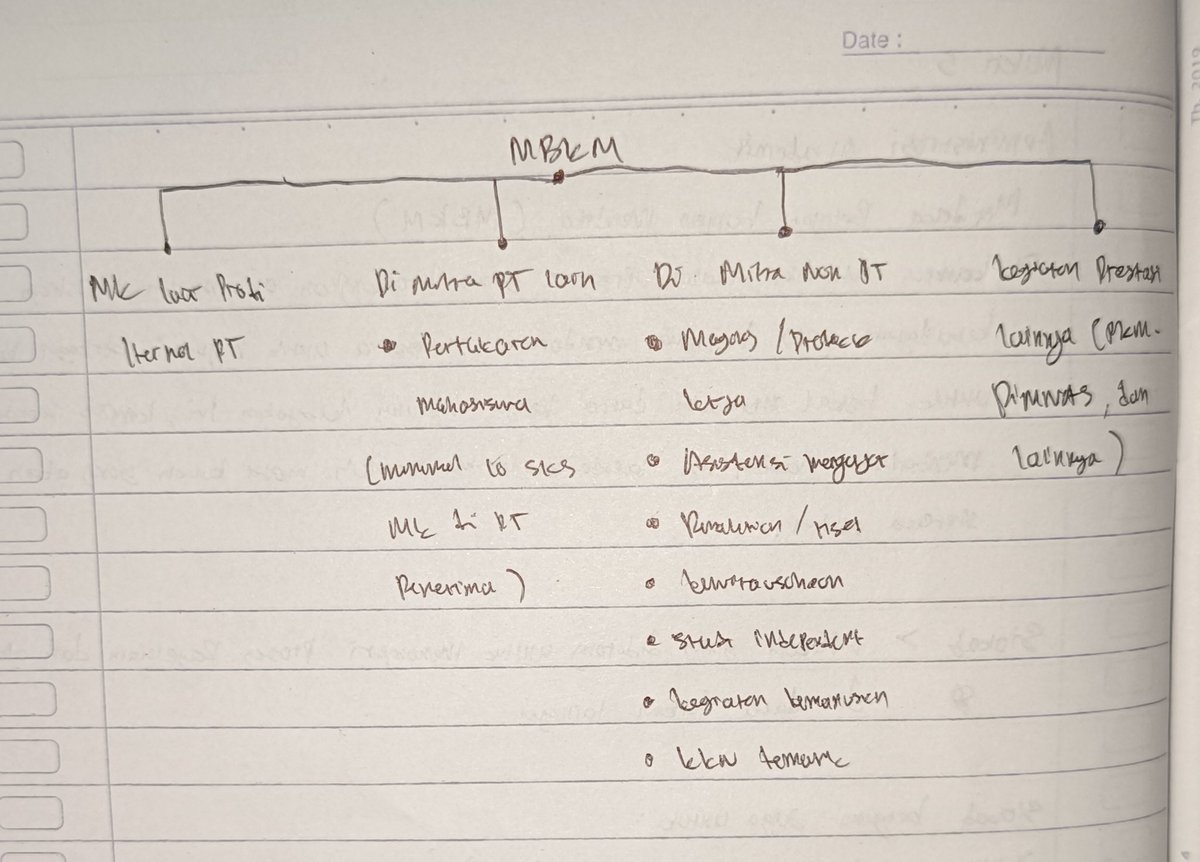 Date :
MBKM
MK luar Prodi
Iternal PT
Di mitra PT lain
• Pertukaran
mahasiswa
(minimal 10 sks
MK di PT
Penerima)
Di Mitra Non PT
• Magang / Praktek
kerja
• Asistensi mengajar
• Penelitian / riset
• kewirausahaan
• studi independent
• kegiatan kemanusian
• kkn tematik
kegiatan Prestasi
lainnya (PKM.
PIMNAS, dan
lainnya)